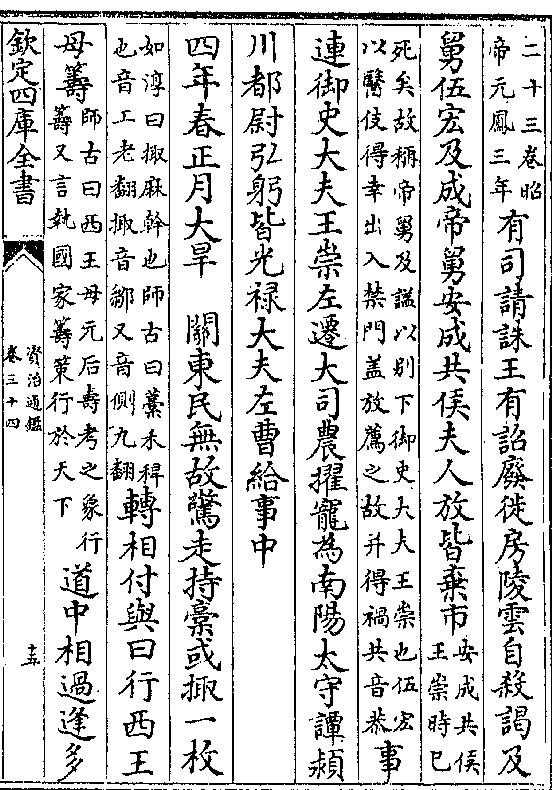 二十三卷昭
帝元鳳三年
有司請誅王有詔廢徙房陵雲自殺謁及
舅伍宏及成帝舅安成共侯夫人放皆棄市
安成共侯
王崇時已
死矣故稱帝舅及諡以别下御史大夫王崇也伍宏
以醫伎得幸出入禁門盖放薦之故并得禍共音恭
事
連御史大夫王崇左遷大司農擢寵為南陽太守譚潁
川都尉弘躬皆光禄大夫左曹給事中
四年春正月大旱 關東民無故驚走持稾或掫一枚
如淳曰掫麻幹也師古曰稾禾稈
也音工老翻掫音鄒又音側九翻
轉相付與曰行西王
母籌
師古曰西王母元后夀考之象行
籌又言執國家籌策行於天下
道中相過逢多
欽定四庫全書
資治通鑑
卷三十四
十五